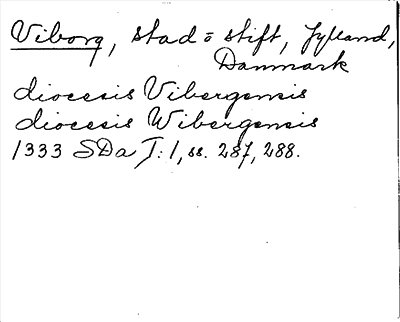 Viborg, stad o stift, Jylland,
Danmark
diocesis Vibergensis
diocesis Wibergensis
1333 SDa I:1, ss. 287, 288.